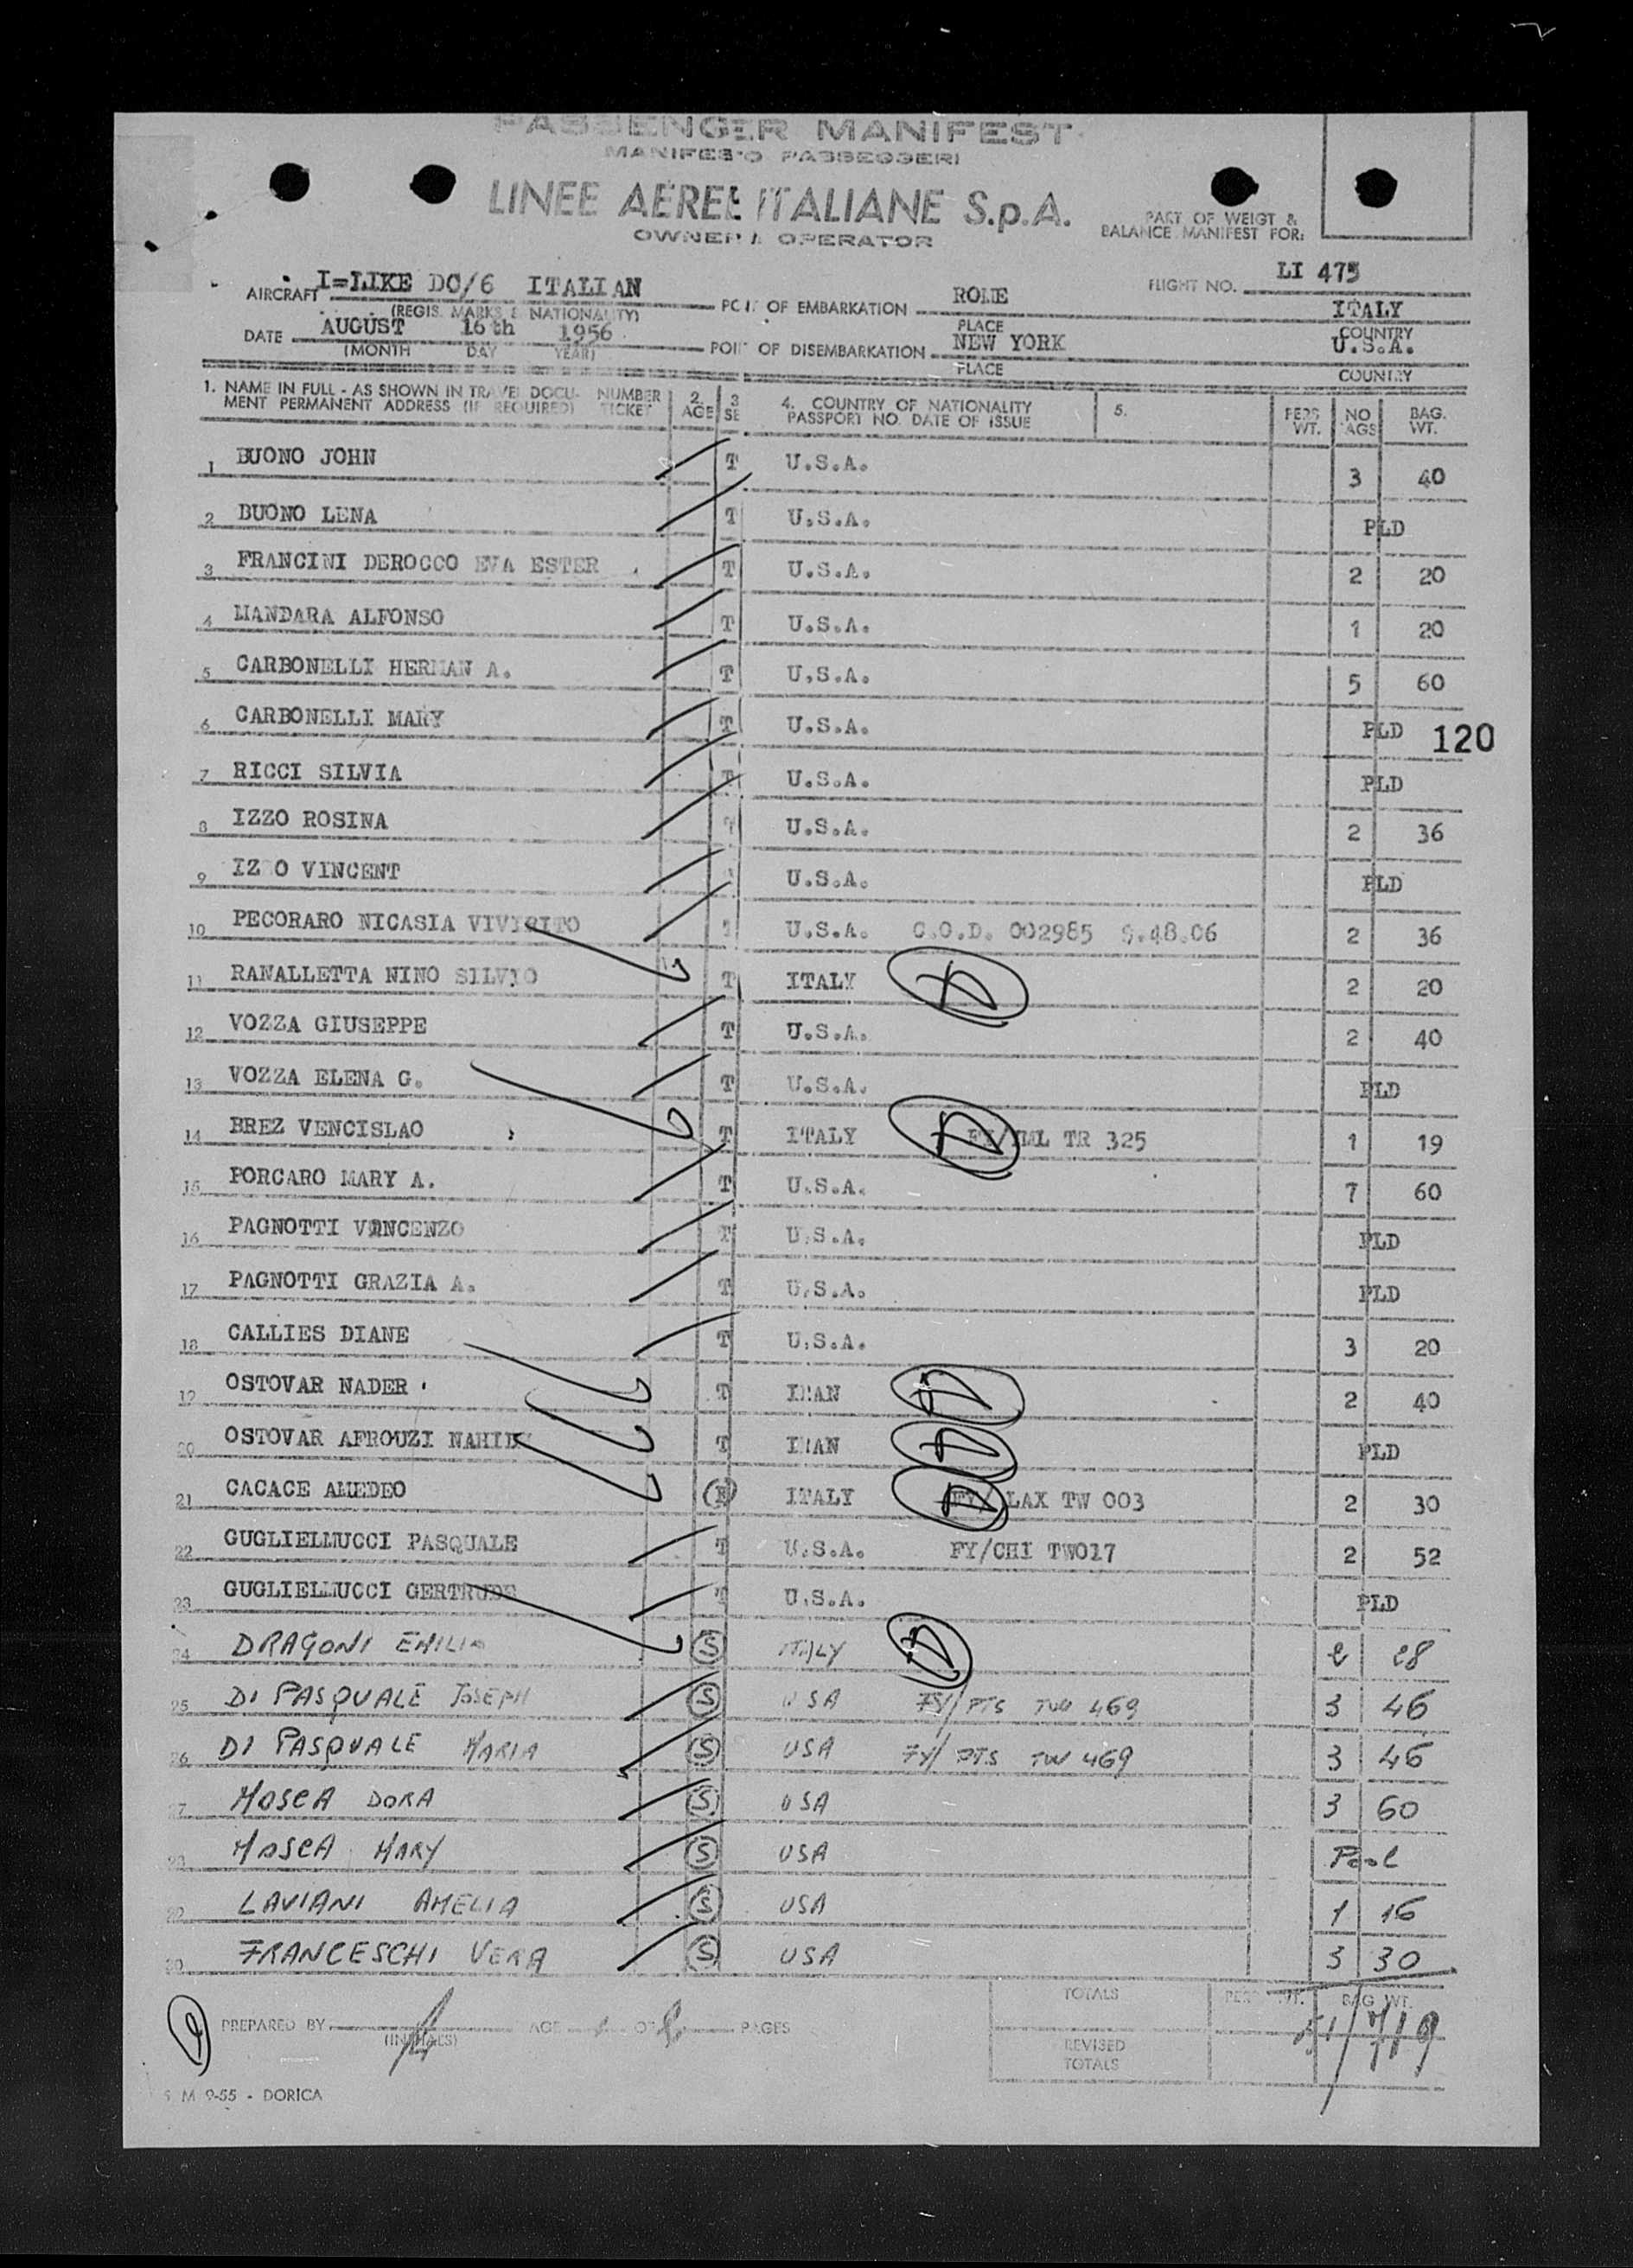 PASSENGER MANIFEST
MANIFESTO PASSEGGERI
LINEE AEREE ITALIANE S.p.A.
OWNER / OPERATOR
PART OF WEIGT &
BALANCE MANIFEST FOR:
AIRCRAFT I=LIKE DC/6 ITALIAN
(REGIS. MARKS & NATIONALITY)
POINT OF EMBARKATION ROME
PLACE
FLIGHT NO. LI 475
ITALY
COUNTRY
DATE AUGUST 16th 1956
(MONTH DAY YEAR)
POINT OF DISEMBARKATION NEW YORK
PLACE
U.S.A.
COUNTRY
1. NAME IN FULL - AS SHOWN IN TRAVEL DOCU- NUMBER
MENT PERMANENT ADDRESS (IF REQUIRED) TICKET
2. AGE
3 SE
4. COUNTRY OF NATIONALITY
PASSPORT NO. DATE OF ISSUE
5.
PERS WT.
NO AGS
BAG. WT.
1 BUONO JOHN T U.S.A. 3 40
2 BUONO LENA T U.S.A. PLD
3 FRANCINI DEROCCO EVA ESTER T U.S.A. 2 20
4 MANDARA ALFONSO T U.S.A. 1 20
5 CARBONELLI HERMAN A. T U.S.A. 5 60
6 CARBONELLI MARY T U.S.A. PLD
120
7 RICCI SILVIA T U.S.A. PLD
8 IZZO ROSINA T U.S.A. 2 36
9 IZ O VINCENT U.S.A. PLD
10 PECORARO NICASIA VIVIRITO U.S.A. C.O.D. 002985 9.48.06 2 36
11 RANALLETTA NINO SILVIO T ITALY 2 20
12 VOZZA GIUSEPPE T U.S.A. 2 40
13 VOZZA ELENA G. T U.S.A. PLD
14 BREZ VENCISLAO T ITALY TR 325 1 19
15 PORCARO MARY A. T U.S.A. 7 60
16 PAGNOTTI VINCENZO T U.S.A. PLD
17 PAGNOTTI GRAZIA A. T U.S.A. PLD
18 CALLIES DIANE T U.S.A. 3 20
19 OSTOVAR NADER T IRAN 2 40
20 OSTOVAR AFROUZI NAHID T IRAN PLD
21 CACACE AMEDEO ITALY FY/ LAX TW 003 2 30
22 GUGLIELMUCCI PASQUALE T U.S.A. FY/CHI TW017 2 52
23 GUGLIELMUCCI GERTRUDE T U.S.A. PLD
24 DRAGONI EMILIA S ITALY 2 28
25 DI PASQUALE JOSEPH S USA FY/ PTS TW 469 3 46
26 DI PASQUALE MARIA S USA FY/ PTS TW 469 3 46
27 MOSCA DORA S USA 3 60
28 MOSCA MARY S USA Pool
29 LAVIANI AMELIA S USA 1 16
30 FRANCESCHI VERA S USA 3 30
TOTALS PERS WT. BAG WT.
PREPARED BY
(INITIALS)
AGE OF PAGES
719
REVISED
TOTALS
M 9-55 - DORICA